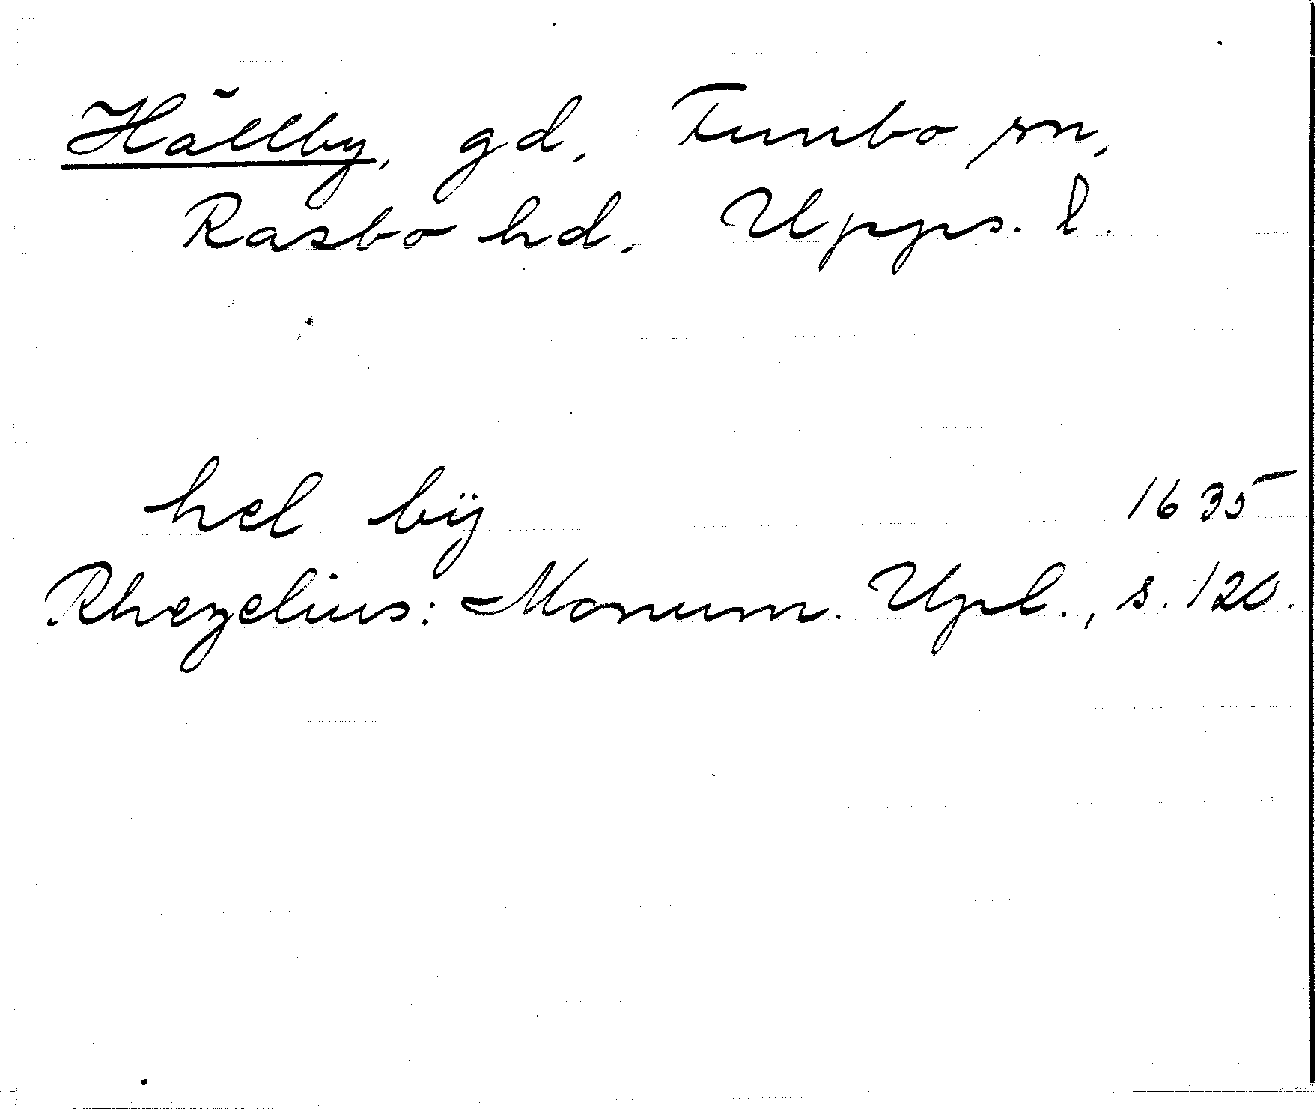 Hällby, gd, Funbo sn,
Rasbo hd, Upps. l.
hel bÿ 1635
Rhezelius: Monum. Upl., s. 120.